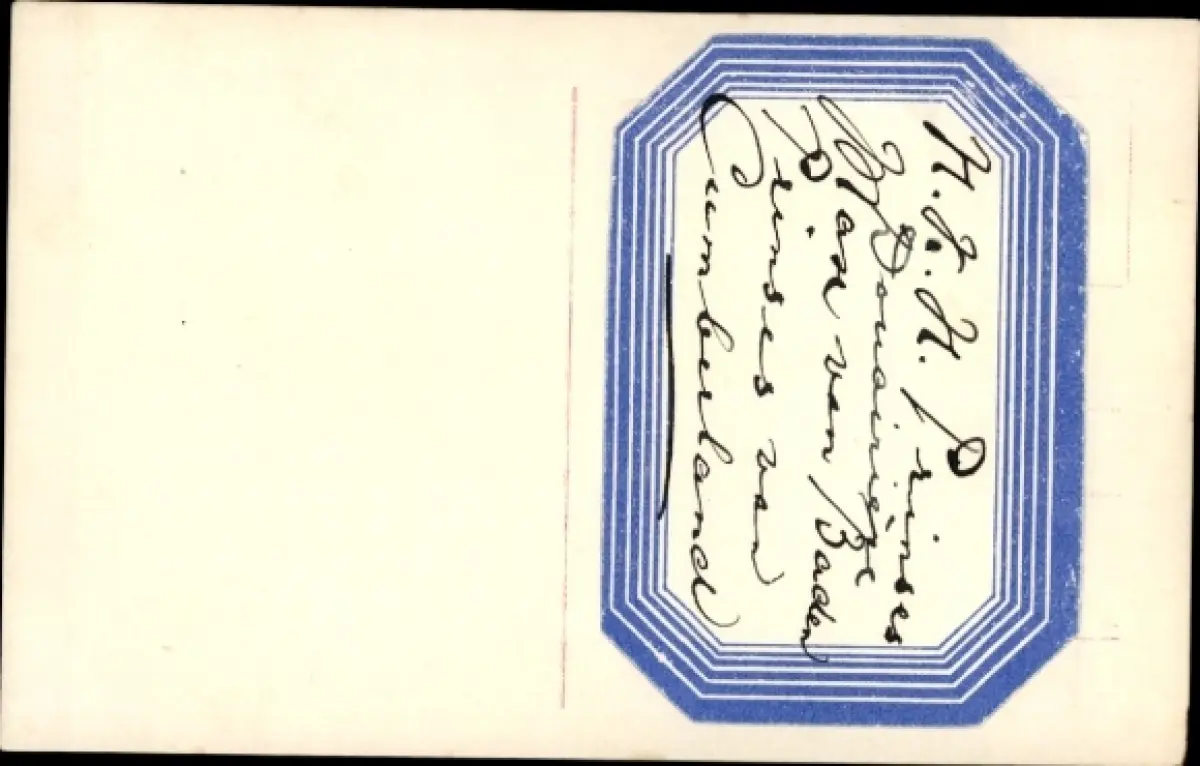 H.G.H. Prinses
Douairière
Max van Baden
Prinses van
Cumberland